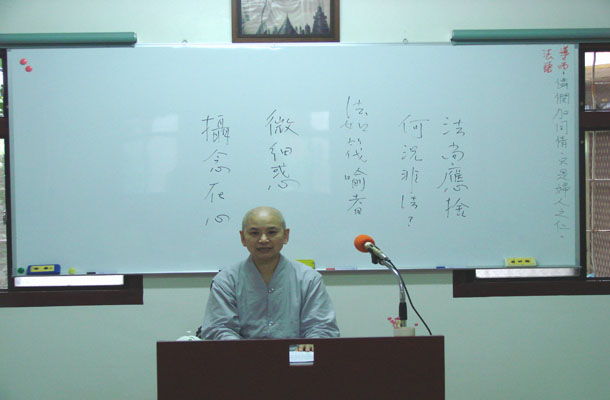 導師:憐憫加同情,只是婦人之仁。
法語
法尚應捨
何況非法?
法如筏喻者
微細惑
攝念在心